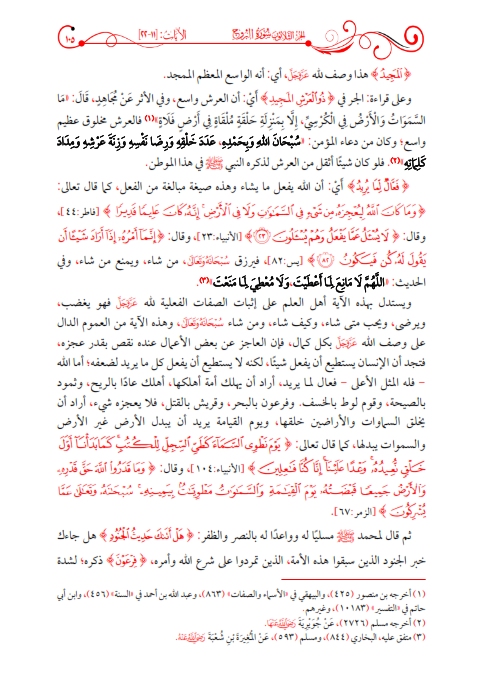 ١٠٥ الجزء الثلاثون سُورَةُ البُرُوج الآيات: [١١-٢٢]
﴿ المَجِيدُ ﴾ هذا وصف لله عَزَّوَجَلَّ، أي: أنه الواسع المعظم الممجد.
وعلى قراءة: الجر في ﴿ ذُو الْعَرْشِ المَجِيدِ ﴾ أَيْ: أن العرش واسع، وفي الأثر عَنْ مُجَاهِدٍ، قَالَ: «مَا
السَّمَوَاتُ وَالْأَرْضُ فِي الْكُرْسِيِّ، إِلَّا بِمَنْزِلَةِ حَلْقَةٍ مُلْقَاةٍ فِي أَرْضٍ فَلَاةٍ»(١) فالعرش مخلوق عظيم
واسع؛ وكان من دعاء المؤمن: «سُبْحَانَ اللهِ وَبِحَمْدِهِ، عَدَدَ خَلْقِهِ وَرِضَا نَفْسِهِ وَزِنَةَ عَرْشِهِ وَمِدَادَ
كَلِمَاتِهِ»(٢). فلو كان شيئًا أثقل من العرش لذكره النبي ﷺ في هذا الموطن.
﴿ فَعَّالٌ لِمَا يُرِيدُ ﴾ أَيْ: أن الله يفعل ما يشاء وهذه صيغة مبالغة من الفعل، كما قال تعالى:
﴿ وَمَا كَانَ اللَّهُ لِيُعْجِزَهُ مِن شَيْءٍ فِي السَّمَوَاتِ وَلَا فِي الْأَرْضِ إِنَّهُ كَانَ عَلِيمًا قَدِيرًا ﴾ [فاطر:٤٤]،
وقال: ﴿ لَا يُسْئَلُ عَمَّا يَفْعَلُ وَهُمْ يُسْئَلُونَ ۝٢٣ ﴾ [الأنبياء:٢٣]، وقال: ﴿ إِنَّمَا أَمْرُهُ إِذَا أَرَادَ شَيْئًا أَن
يَقُولَ لَهُ كُن فَيَكُونُ ۝٨٢ ﴾ [يس:٨٢]، فيرزق سُبْحَانَهُ وَتَعَالَى، من شاء، ويمنع من شاء، وفي
الحديث: «اللَّهُمَّ لَا مَانِعَ لِمَا أَعْطَيْتَ، وَلَا مُعْطِيَ لِمَا مَنَعْتَ»(٣).
ويستدل بهذه الآية أهل العلم على إثبات الصفات الفعلية لله عَزَّوَجَلَّ فهو يغضب،
ويرضى، ويحب متى شاء، وكيف شاء، ومن شاء سُبْحَانَهُ وَتَعَالَى، وهذه الآية من العموم الدال
على وصف الله عَزَّوَجَلَّ بكل كمال، فإن العاجز عن بعض الأعمال عنده نقص بقدر عجزه،
فتجد أن الإنسان يستطيع أن يفعل شيئًا، لكنه لا يستطيع أن يفعل كل ما يريد لضعفه؛ أما الله
- فله المثل الأعلى - فعال لما يريد، أراد أن يهلك أمة أهلكها، أهلك عادًا بالريح، وثمود
بالصيحة، وقوم لوط بالخسف. وفرعون بالبحر، وقريش بالقتل، فلا يعجزه شيء، أراد أن
يخلق السماوات والأراضين خلقها، ويوم القيامة يريد أن يبدل الأرض غير الأرض
والسموات يبدلها، كما قال تعالى: ﴿ يَوْمَ نَطْوِي السَّمَاءَ كَطَيِّ السِّجِلِّ لِلْكُتُبِ كَمَا بَدَأْنَا أَوَّلَ
خَلْقٍ نُّعِيدُهُ وَعْدًا عَلَيْنَا إِنَّا كُنَّا فَاعِلِينَ ﴾ [الأنبياء:١٠٤]، وقال: ﴿ وَمَا قَدَرُوا اللَّهَ حَقَّ قَدْرِهِ
وَالْأَرْضُ جَمِيعًا قَبْضَتُهُ يَوْمَ الْقِيَامَةِ وَالسَّمَوَاتُ مَطْوِيَّاتٌ بِيَمِينِهِ سُبْحَانَهُ وَتَعَالَى عَمَّا
يُشْرِكُونَ ﴾ [الزمر:٦٧].
ثم قال لمحمد ﷺ مسليًا له وواعدًا له بالنصر والظفر: ﴿ هَلْ أَتَاكَ حَدِيثُ الْجُنُودِ ﴾ هل جاءك
خبر الجنود الذين سبقوا هذه الأمة، الذين تمردوا على شرع الله وأمره، ﴿ فِرْعَوْنَ ﴾ ذكره؛ لشدة
(١) أخرجه بن منصور (٤٢٥)، والبيهقي في «الأسماء والصفات» (٨٦٣)، وعبد الله بن أحمد في «السنة» (٤٥٦)، وابن أبي
حاتم في «التفسير» (١٠١٨٣)، وغيرهم.
(٢) أخرجه مسلم (٢٧٢٦)، عَنْ جُوَيْرِيَةَ رَضِيَ اللَّهُ عَنْهَا.
(٣) متفق عليه، البخاري (٨٤٤)، ومسلم (٥٩٣)، عَنْ المُغِيرَةَ بْنِ شُعْبَةَ رَضِيَ اللَّهُ عَنْهُ.